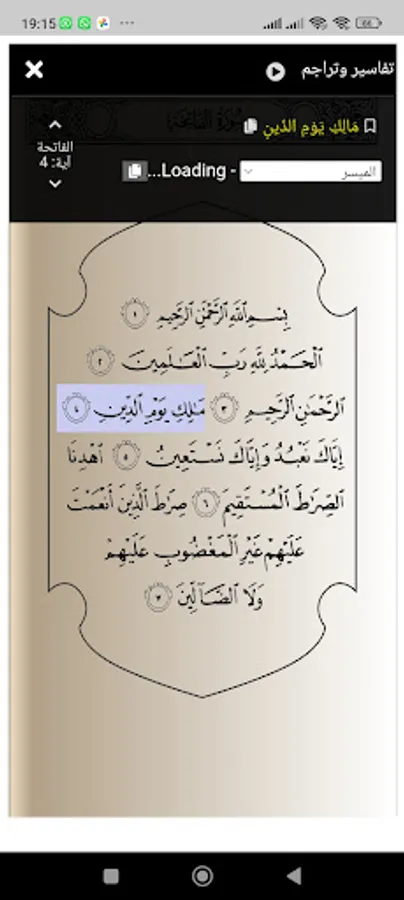 19:15
تفاسير وتراجم
سورة الفاتحة
مَالِكِ يَوْمِ الدِّينِ
الفاتحة
آية: 4
الميسر - Loading...
بِسْمِ ٱللَّهِ ٱلرَّحْمَٰنِ ٱلرَّحِيمِ ١
ٱلْحَمْدُ لِلَّهِ رَبِّ ٱلْعَٰلَمِينَ ٢
ٱلرَّحْمَٰنِ ٱلرَّحِيمِ ٣ مَٰلِكِ يَوْمِ ٱلدِّينِ ٤
إِيَّاكَ نَعْبُدُ وَإِيَّاكَ نَسْتَعِينُ ٥ ٱهْدِنَا
ٱلصِّرَٰطَ ٱلْمُسْتَقِيمَ ٦ صِرَٰطَ ٱلَّذِينَ أَنْعَمْتَ
عَلَيْهِمْ غَيْرِ ٱلْمَغْضُوبِ عَلَيْهِمْ
وَلَا ٱلضَّآلِّينَ ٧